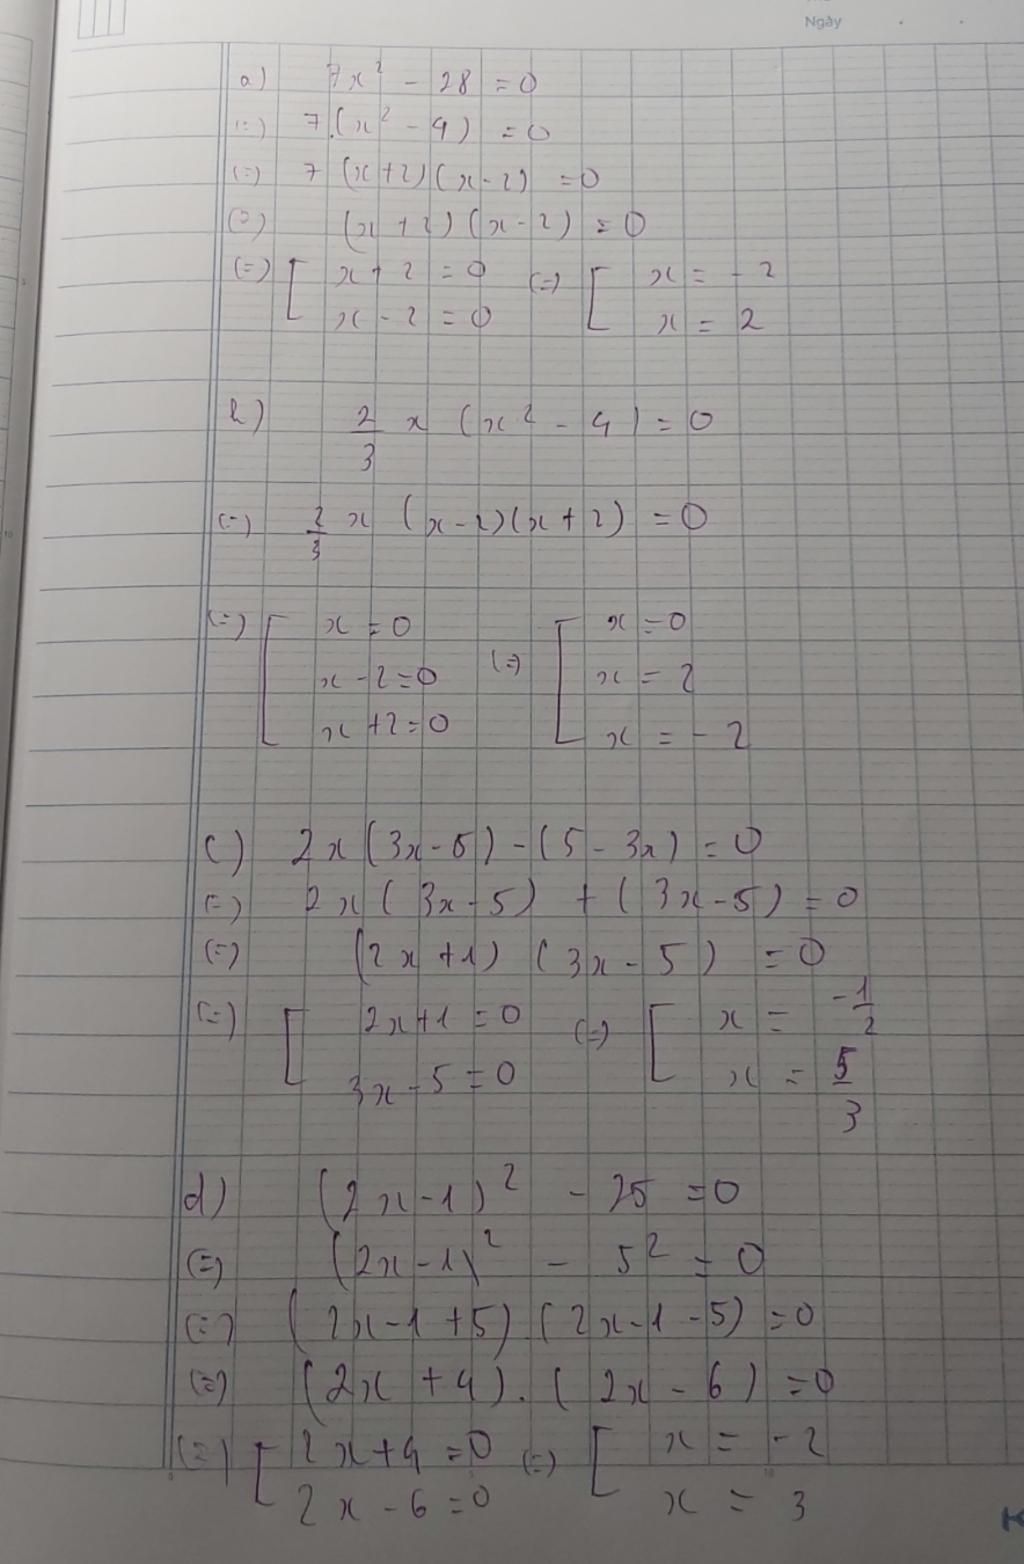 Ngày
a) 7x² - 28 = 0
(=) 7.(x² - 4) = 0
(=) 7 (x+2)(x-2) = 0
(=) (x+2)(x-2) = 0
(=) [ x+2 = 0 (=) [ x = -2
x-2 = 0 x = 2
b) 2/3 x (x² - 4) = 0
(=) 2/3 x (x-2)(x+2) = 0
(=) [ x = 0 (=) [ x = 0
x-2=0 x = 2
x+2=0 x = -2
c) 2x(3x-5) - (5-3x) = 0
(=) 2x(3x-5) + (3x-5) = 0
(=) (2x+1) (3x-5) = 0
(=) [ 2x+1 = 0 (=) [ x = -1/2
3x-5 = 0 x = 5/3
d) (2x-1)² - 25 = 0
(=) (2x-1)² - 5² = 0
(=) (2x-1+5).(2x-1-5) = 0
(=) (2x+4).(2x-6) = 0
(=) [ 2x+4 = 0 (=) [ x = -2
2x-6 = 0 x = 3